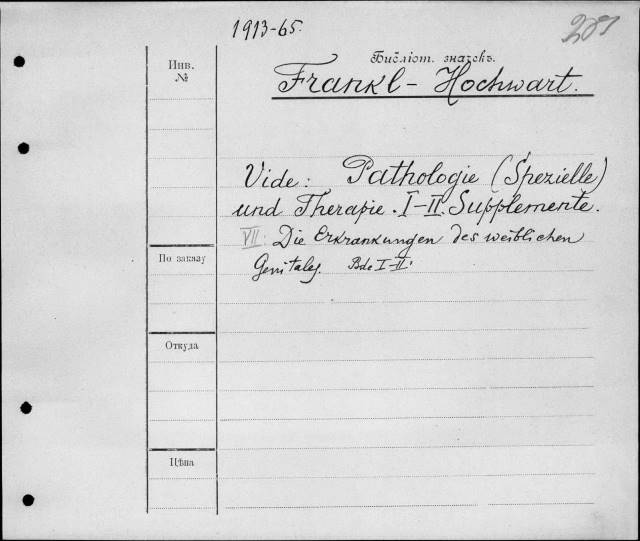 1913-65.
281
Инв.
№
Библіот. значекъ.
Frankl-Hochwart.
Vide: Pathologie (Spezielle)
und Therapie. I-II. Supplemente.
VII. Die Erkrankungen des weiblichen
По заказу
Genitales. Bde I-II.
Откуда
Цѣна